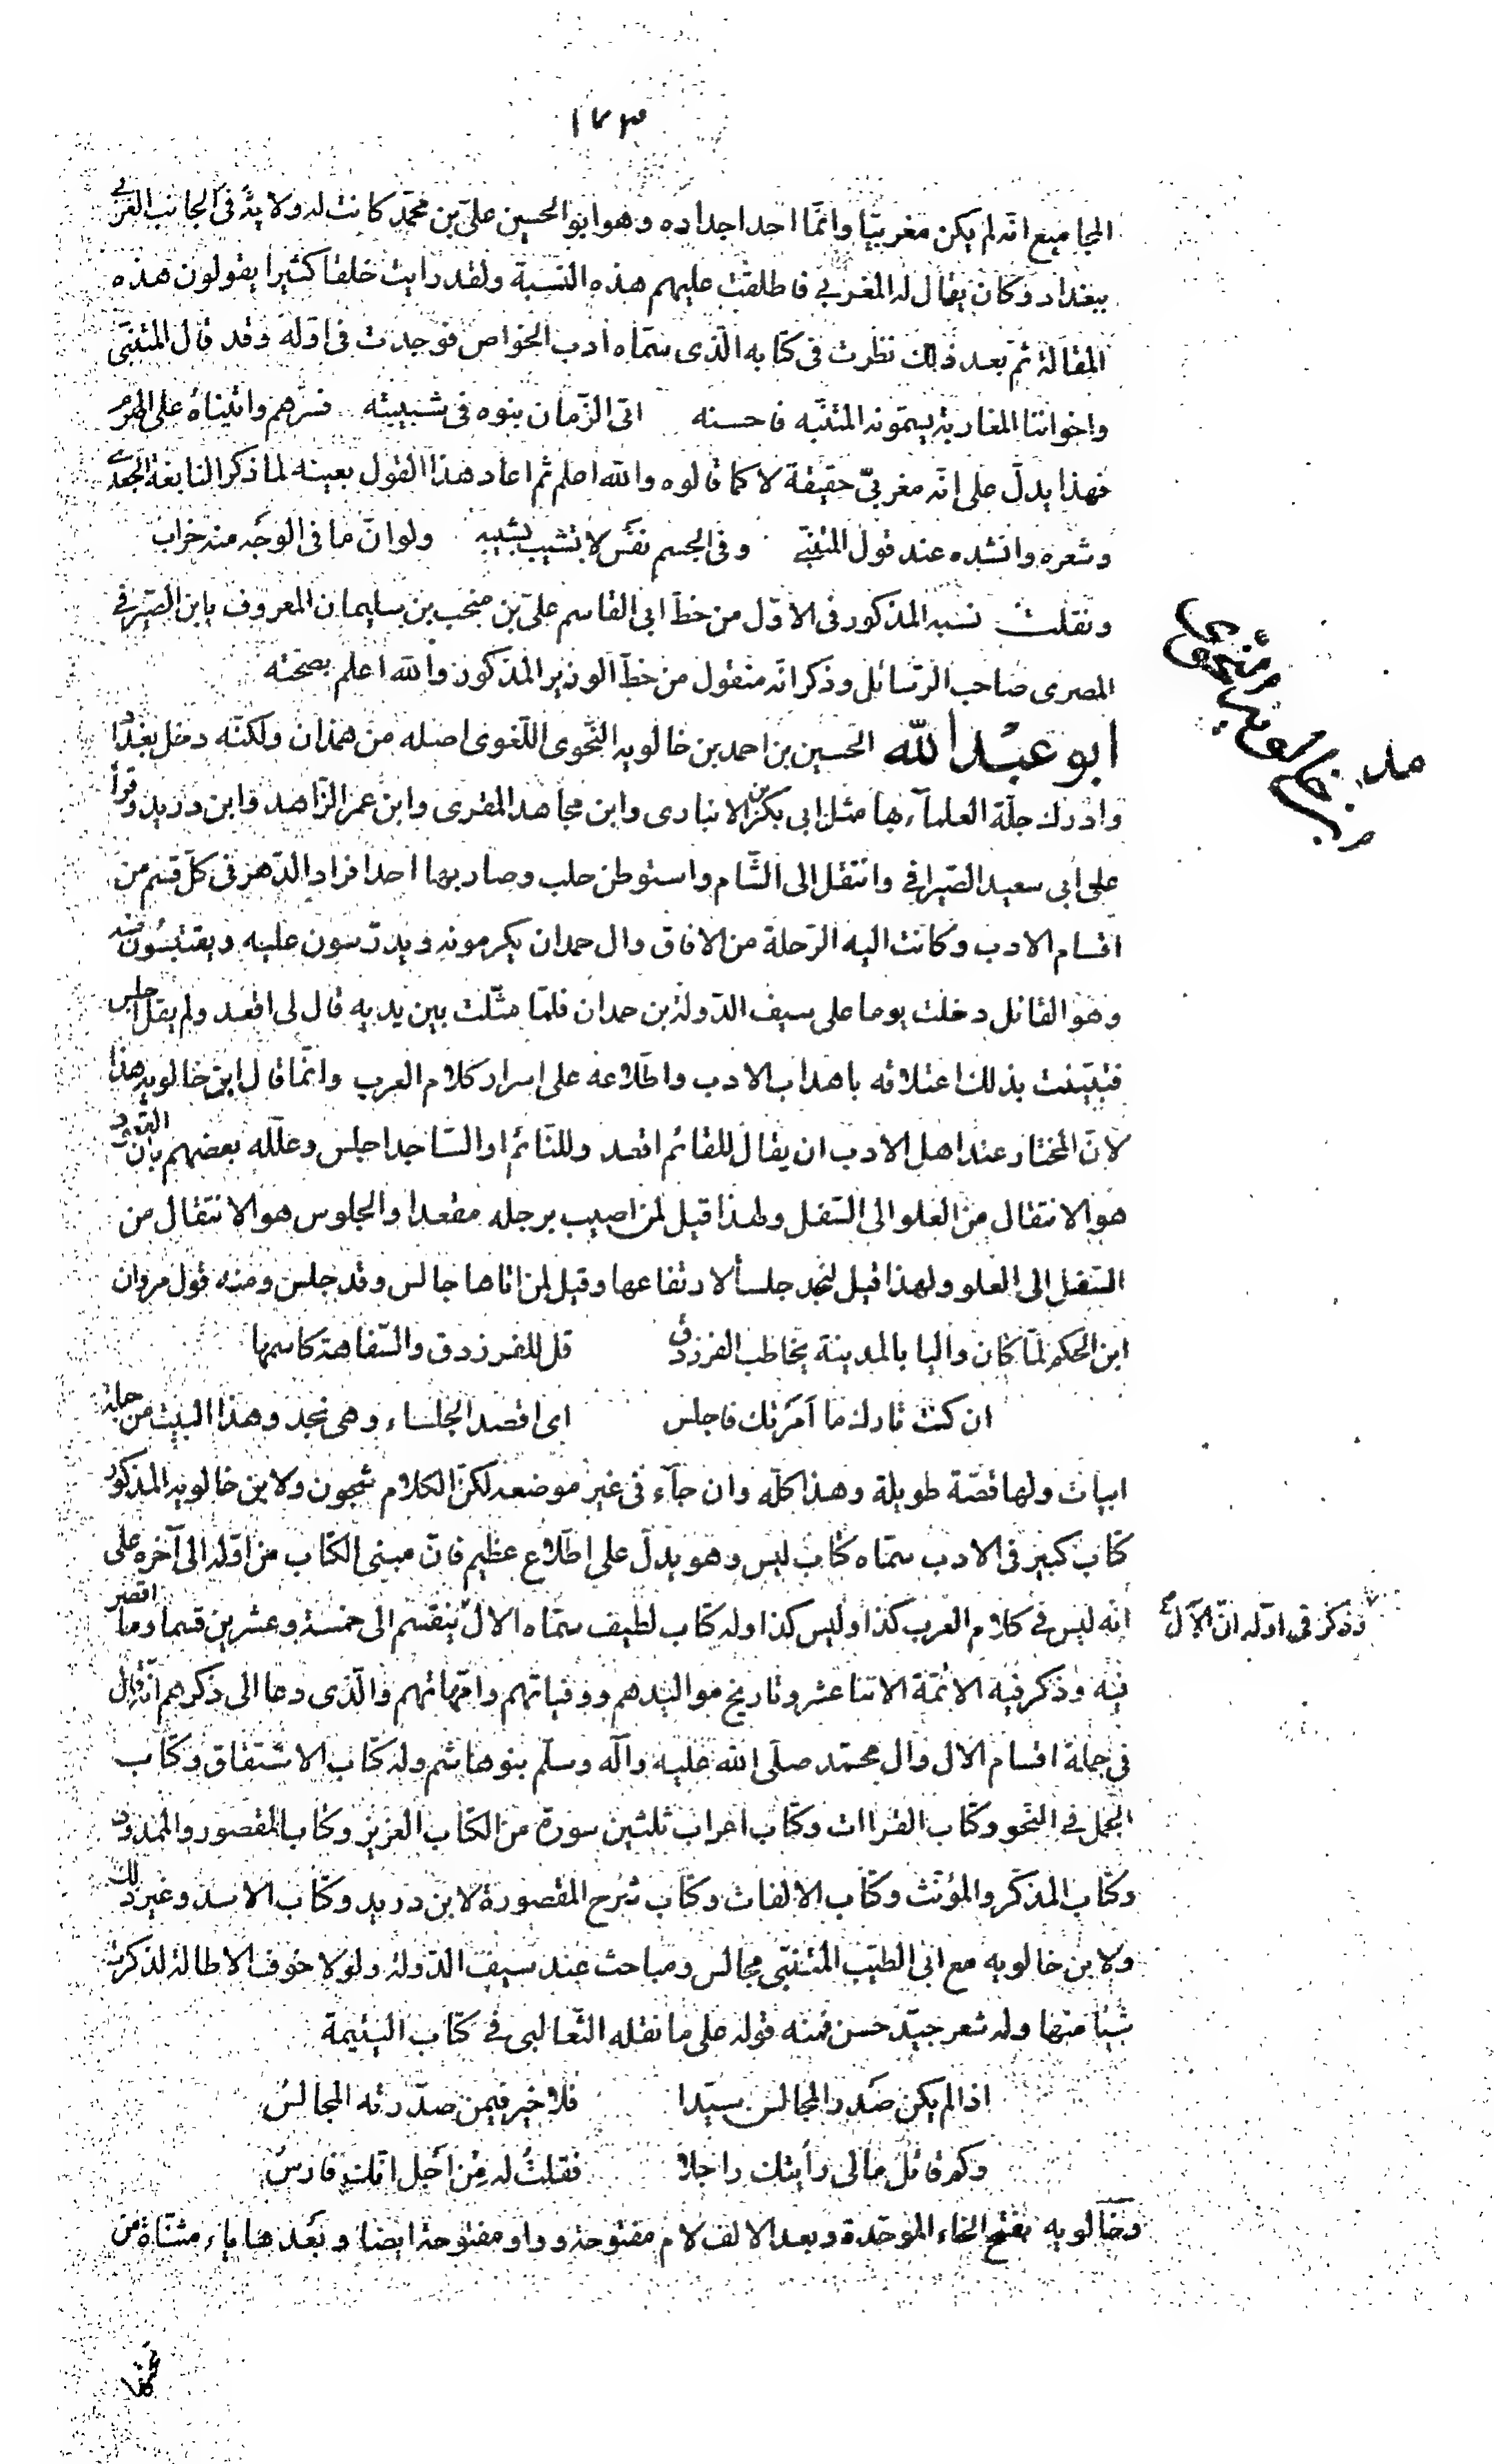 ١٧٣
المجاميع انّه لم يكن مغربيّا وانمّا احد اجداده وهو ابو الحسين علىّ بن محمّد كانت له ولاية فى الجانب الغربى
ببغداد وكان يقال له المغربى فاطلقت عليهم هذه النسبة ولقد رايت خلقا كثيرا يقولون هذه
المقالة ثم بعد ذلك نظرت فى كتابه الّذى سمّاه ادب الخواص فوجدت فى اوّله وقد قال المتنبّى
واخواننا المغاربة يسمّونه المتنبّه فاحسنه اتى الزّمان بنوه فى شبيبته فسرّهم واتيناه على الهرم
فهذا يدلّ على انّه مغربىّ حقيقة لا كما قالوه والله اعلم ثم اعاد هذا القول بعينه لما ذكر النابغة الجعدى
وشعره وانشده عند قول المتنبّى وفى الجسم نفس لا تشيب بشيبه ولو انّ ما فى الوجه منه خراب
ونقلت نسبه المذكور فى الاوّل من خطّ ابى القاسم علىّ بن منجب بن سليمان المعروف بابن الصّيرفى
المصرى صاحب الرّسائل وذكر انّه منقول من خطّ الوزير المذكور والله اعلم بصحّته
ابو عبد الله الحسين بن احمد بن خالويه النّحوى اللّغوى اصله من همذان ولكنّه دخل بغداد
وادرك جلّة العلمآء بها مثل ابى بكر بن الانبارى وابن مجاهد المقرى وابن عمر الزّاهد وابن دريد وقرأ
على ابى سعيد الصّيرافى وانتقل الى الشّام واستوطن حلب وصار بها احد افراد الدّهر فى كلّ قسم من
اقسام الادب وكانت اليه الرّحلة من الافاق وال حمدان يكرمونه ويدرّسون عليه ويقتبسون منه
وهو القائل دخلت يوما على سيف الدّولة بن حمدان فلمّا مثّلت بين يديه قال لى اقعد ولم يقل اجلس
فتبيّنت بذلك اعتلاقه باهداب الادب واطّلاعه على اسرار كلام العرب وانمّا قال ابن خالويه هذا
لانّ المختار عند اهل الادب ان يقال للقائم اقعد وللنّائم او السّاجد اجلس وعلّله بعضهم بانّ القعود
هو الانتقال من العلو الى السّفل ولهذا قيل لمن اصيب برجله مقعد والجلوس هو الانتقال من
السّفل الى العلو ولهذا قيل لنجد جلسا لارتفاعها وقيل لمن اتاها جالس وقد جلس ومنه قول مروان
ابن الحكم لمّا كان واليا بالمدينة يخاطب الفرزدق قل للفرزدق والسّفاهة كاسمها
ان كنت تارك ما امرتك فاجلس اى اقصد الجلساء وهى نجد وهذا البيت من جملة
ابيات ولها قصّة طويلة وهذا كلّه وان جآء فى غير موضعه لكنّ الكلام شجون ولابن خالويه المذكور
كتاب كبير فى الادب سمّاه كتاب ليس وهو يدلّ على اطّلاع عظيم فانّ مبنى الكتاب من اوّله الى آخره على
انّه ليس فى كلام العرب كذا وليس كذا وله كتاب لطيف سمّاه الال ينقسم الى خمسة وعشرين قسما وما اقصر
وذكر فى اوّله انّ الآل
فيه وذكر فيه الائمّة الاثنا عشر وتاريخ مواليدهم ووفياتهم وامّهاتهم والّذى دعا الى ذكرهم انّه قال
فى جملة اقسام الال وال محمّد صلّى الله عليه وآله وسلّم بنو هاشم وله كتاب الاشتقاق وكتاب
الجمل فى النّحو وكتاب القراات وكتاب اعراب ثلثين سورة من الكتاب العزيز وكتاب المقصور والممدود
وكتاب المذكّر والمؤنّث وكتاب الالفات وكتاب شرح المقصورة لابن دريد وكتاب الاسد وغير ذلك
ولابن خالويه مع ابى الطيّب المتنبّى مجالس ومباحث عند سيف الدّولة ولولا خوف الاطالة لذكرت
شيئا منها وله شعر جيّد حسن فمنه قوله على ما نقله الثّعالبى فى كتاب اليتيمة
اذا لم يكن صدر المجالس سيّدا فلا خير فيمن صدّرته المجالس
وكم قائل ما لى رأيتك راجلا فقلت له من اجل انّك فارس
وخالويه بفتح الخاء الموحّدة وبعد الالف لام مفتوحة وواو مفتوحة ايضا وبعدها ياء مثنّاة من
تحتها